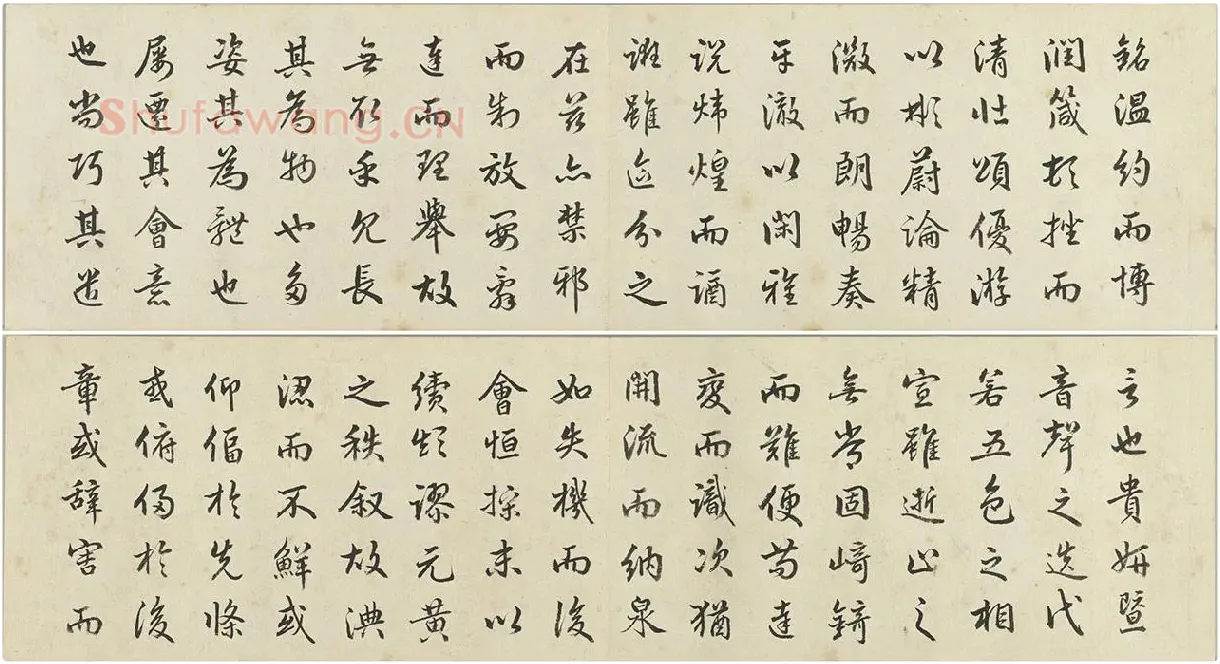 銘温約而博
潤箴頓挫而
清壯頌優游
以彬蔚論精
微而朗暢奏
平徹以閑雅
說煒煌而譎
誑雖區分之
在茲亦禁邪
而制放要辭
達而理舉故
無取乎冗長
其為物也多
姿其為體也
屢遷其會意
也尚巧其遣
言也貴妍暨
音聲之迭代
若五色之相
宣雖逝止之
無常固崎錡
而難便苟達
變而識次猶
開流而納泉
如失機而後
會恒操末以
續顛謬元黃
之秩叙故淟
涊而不鮮或
仰偪於先條
或俯侵於後
章或辭害而
Shufawang.CN